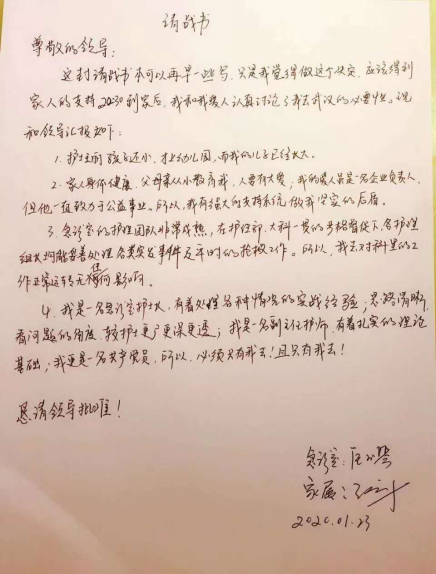 请战书
尊敬的领导:
这封请战书本可以再早一些写,只是我觉得做这个决定,应该得到
家人的支持。到家后,我和我爱人认真讨论了我去武汉的必要性。现
和领导汇报如下:
1. 护士前孩子还小,才上幼儿园,而我的儿子已经长大。
2. 家人身体健康,父母亲从小教育我,人要有大爱;我的爱人虽是一名企业负责人,
但他一直致力于公益事业。所以,我有强大的支持系统做我坚实的后盾。
3. 急诊室的护理团队非常成熟,在护理部、大科一贯的严格督促下,各护理
组长均能妥善处理各类突发事件及平时的抢救工作。所以,我去对科里的工
作正常运转无任何影响。
4. 我是一名急诊室护士长,有着处理各种情况的实战经验,思路清晰,
看问题的角度较护士更广更深更透;我是一名副主任护师,有着扎实的理论
基础;我更是一名共产党员,所以,必须只有我去!且只有我去!
恳请领导批准!
急诊室:
家属:
2020.01.23